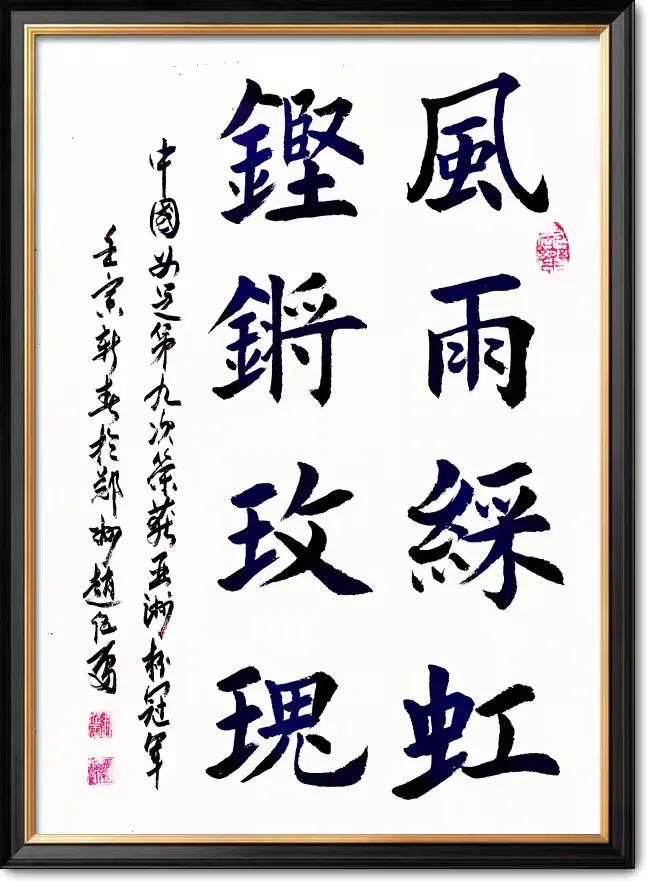 風雨綵虹
鏗鏘玫瑰
中國女足第九次荣获亚洲杯冠军
壬寅新春於鄭州趙